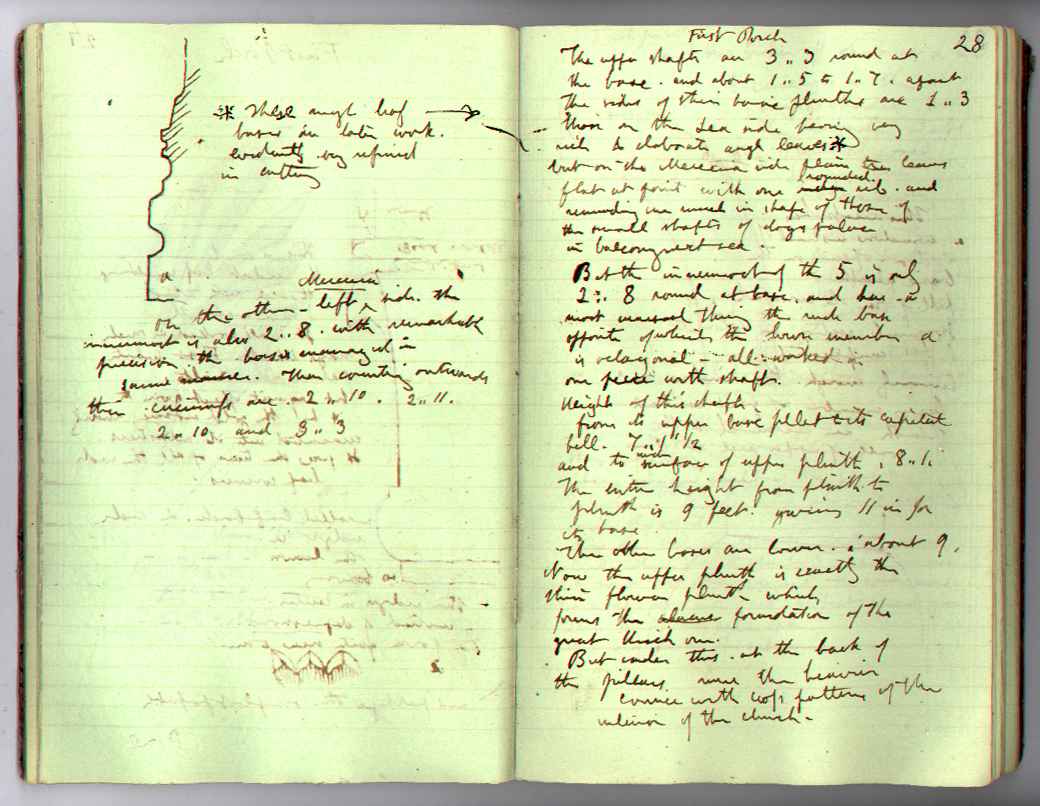 * These angle leaf
bases in later work.
evidently very refined
in cutting
a
Merceria
On the other - left side. the
innermost is also 2..8. with remarkable
precision the bases managed in
same manner. Then counting outwards
their circumfs are. 2..10. 2..11.
2..10 and 3..3
First Porch
28
The upper shafts are 3..3 round at
the base. and about 1..5 to 1..7. apart
The sides of their basic plinths are 1..3
those on the sea side having very
rich & elaborate angle leaves*
but on the Merceria side plain leaves
flat at point with one rounded rib. and
reminding me much in shape of those of
the small shafts of doges palace
in balcony
But the innermost of the 5 is only
2..8 round at base. and has a
most unusual thing the base
opposite of which the lower member a
is octagonal - all worked in
one piece with shaft.
Height of this shaft.
from its upper base fillet to its capital
bell. 7..1 1/2
and to surface of upper plinth, 8..1.
The entire height from plinth to
plinth is 9 feet. giving 11 in for
its base.
The other bases are lower. about 9.
Now the upper plinth is exactly the
flower plinth which
forms the foundation of the
great thick one.
But under this. at the back of
the pillars. runs the heavier
cornice with pattern of the
interior of the church.